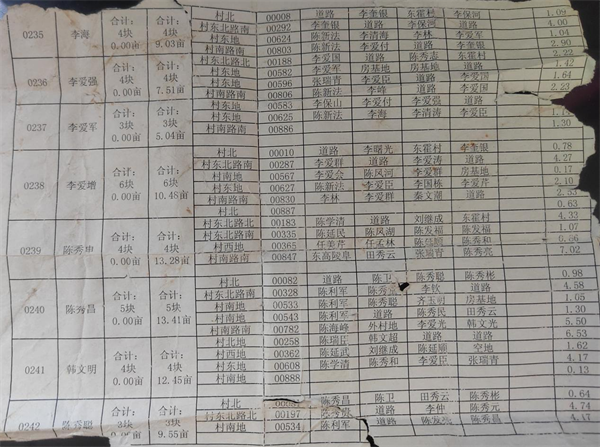 0235 李海 合计: 4块 0.00亩 合计: 4块 9.03亩
村北 00008 道路 李奎银 东霍村 李保河 1.09
村东北路南 00292 李奎银 道路 李保河 道路 4.00
村东地 00524 陈新法 李清海 李林 李爱军 1.04
村南路南 00803 陈新法 李爱付 道路 李奎银 2.90
0236 李爱强 合计: 4块 0.00亩 合计: 4块 7.51亩
村东北路北 00188 李爱国 道路 陈秀志 东霍村 2.22
村东地 00582 李爱军 房基地 房基地 道路 1.42
村东地 00596 张瑞青 李爱臣 道路 李爱国 1.64
村南路南 00806 陈新法 李峰 道路 李爱国 2.23
0237 李爱军 合计: 3块 0.00亩 合计: 3块 5.04亩
村东地 00583 李保山 李爱付 李爱强 道路
村东地 00625 陈新法 李海 李清涛 李爱臣
村南路南 00886 1.30
0238 李爱增 合计: 6块 0.00亩 合计: 6块 10.48亩
村北 00010 道路 李曙光 东霍村 李奎银 0.78
村东北路南 00287 李爱群 道路 李爱涛 道路 4.27
村南地 00567 李爱会 陈凤河 李爱群 房基地 0.17
村东地 00627 陈新法 李爱臣 李国栋 李爱芹 2.10
村南路南 00830 李林 李爱群 秦文潮 道路 2.53
村北 00887 0.63
0239 陈秀忠 合计: 4块 0.00亩 合计: 4块 13.28亩
村东北路北 00183 陈学清 道路 刘继成 东霍村 4.33
村东北路南 00335 陈延民 陈凤湖 陈发福 陈发福 1.07
村西地 00365 任美芹 任孟林 陈秀和
村南路南 00847 东高陵阜 田秀云 张瑞青 陈秀亮 7.02
0240 陈秀昌 合计: 5块 0.00亩 合计: 5块 13.41亩
村北 00082 道路 陈卫 陈秀聪 陈秀彬 0.98
村东北路南 00328 陈利军 李钦 道路 4.58
村南地 00533 陈利军 陈秀聪 齐玉明 房基地 1.05
村南地 00543 陈利军 道路 陈秀民 田秀云 1.30
村南路南 00782 陈海峰 外村地 李爱光 韩文光 5.50
0241 韩文明 合计: 4块 0.00亩 合计: 4块 12.45亩
村北地 00258 陈瑞臣 韩文超 道路 道路 6.53
村西地 00362 陈延武 刘继成 陈延顺 空地 1.62
村东地 00608 陈学清 陈秀和 李爱臣 张瑞青 4.17
村南地 00888 0.13
0242 陈秀聪 合计: 合计: 9.55亩
村北 陈秀昌 陈卫 田秀云 陈秀彬 0.64
村东北路南 00197 道路 李仲 陈秀元 4.74
村南地 00534 陈利军 道路 陈发强 陈秀昌